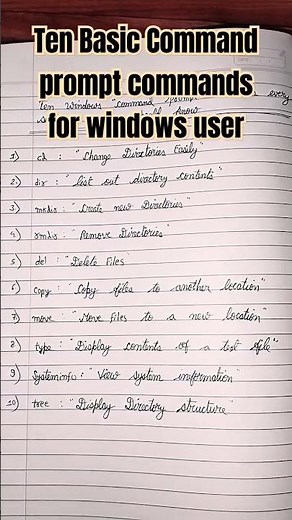 Ten Basic Command
prompt commands
for windows user
Ten Windows Command every
Know
1) cd : "Change Directories Easily"
2) dir : "list out directory contents"
3) mkdir : "Create new Directories"
4) rmdir : "Remove Directories"
5) del : "Delete Files"
6) Copy : "Copy files to another location"
7) move : "Move Files to a new location"
8) type : "Display contents of a text file"
9) Systeminfo : "View system information"
10) tree : "Display Directory structure"